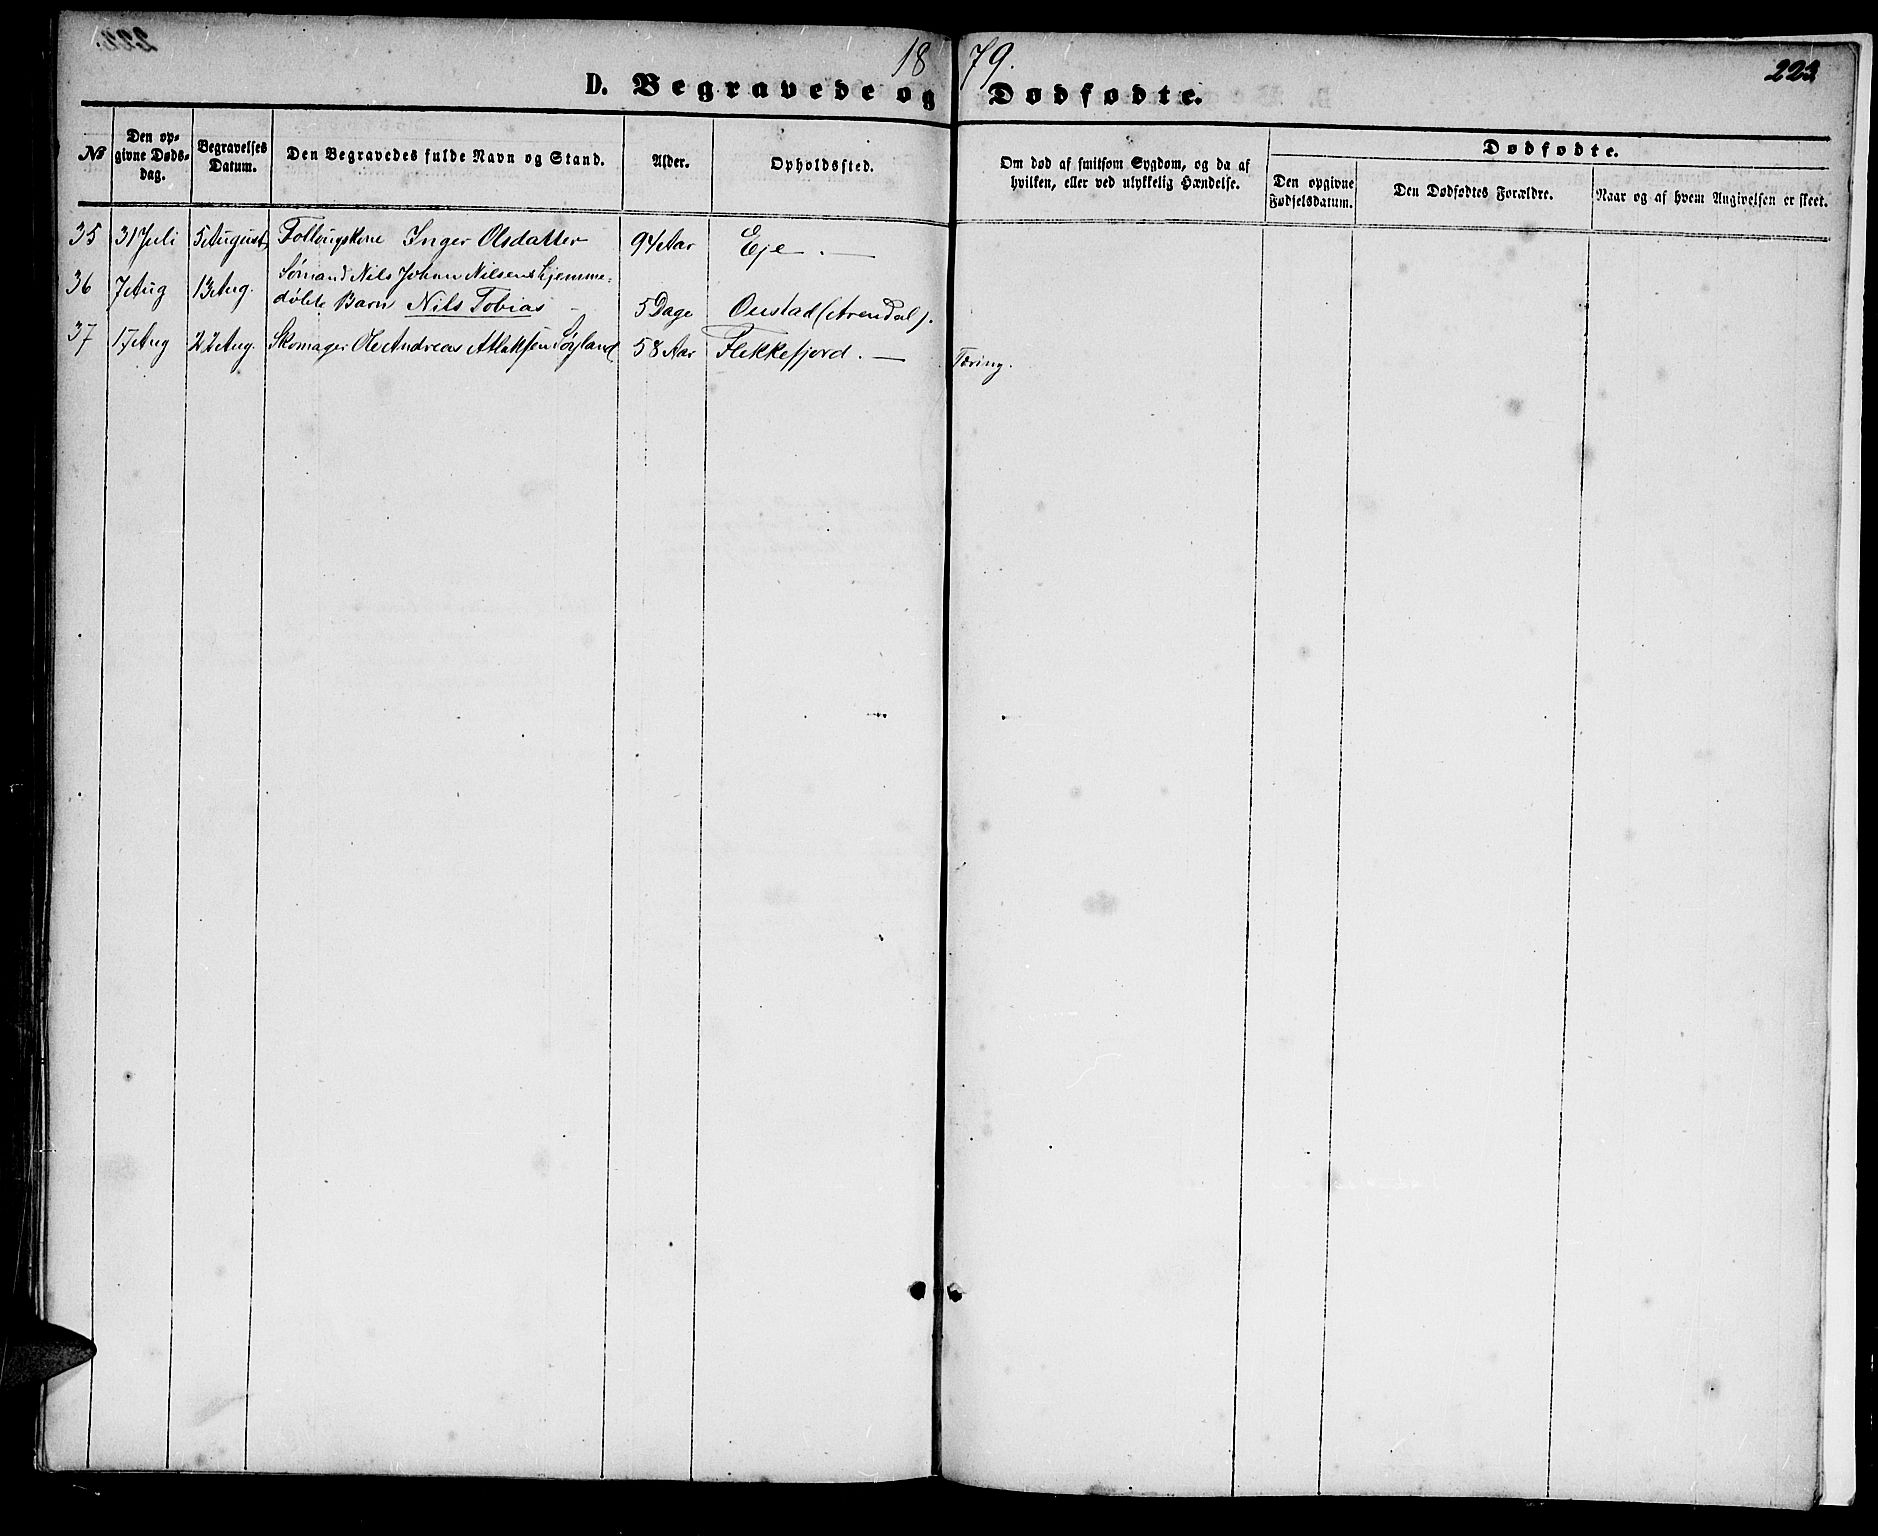 1879.
223
D. Begravede og Dødfødte.
№
Den opgivne Dødsdag.
Begravelses Datum.
Den Begravedes fulde Navn og Stand.
Alder.
Opholdssted.
Om død af smitsom Sygdom, og da af hvilken, eller ved ulykkelig Hændelse.
Dødfødte.
Den opgivne Fødselsdatum.
Den Dødfødtes Forældre.
Naar og af hvem Angivelsen er skeet.
35 31 Juli 5 August Inger Olsdatter 94 Aar Eje. —
36 7 Aug 13 Aug. Sømand Nils Johan Nilsens hjemme-
døbte Barn Nils Tobias — 5 Dage (Arendal).
37 17 Aug 22 Aug. Skomager Ole Andreas Atlaksen 58 Aar Flekkefjord. — Tæring.